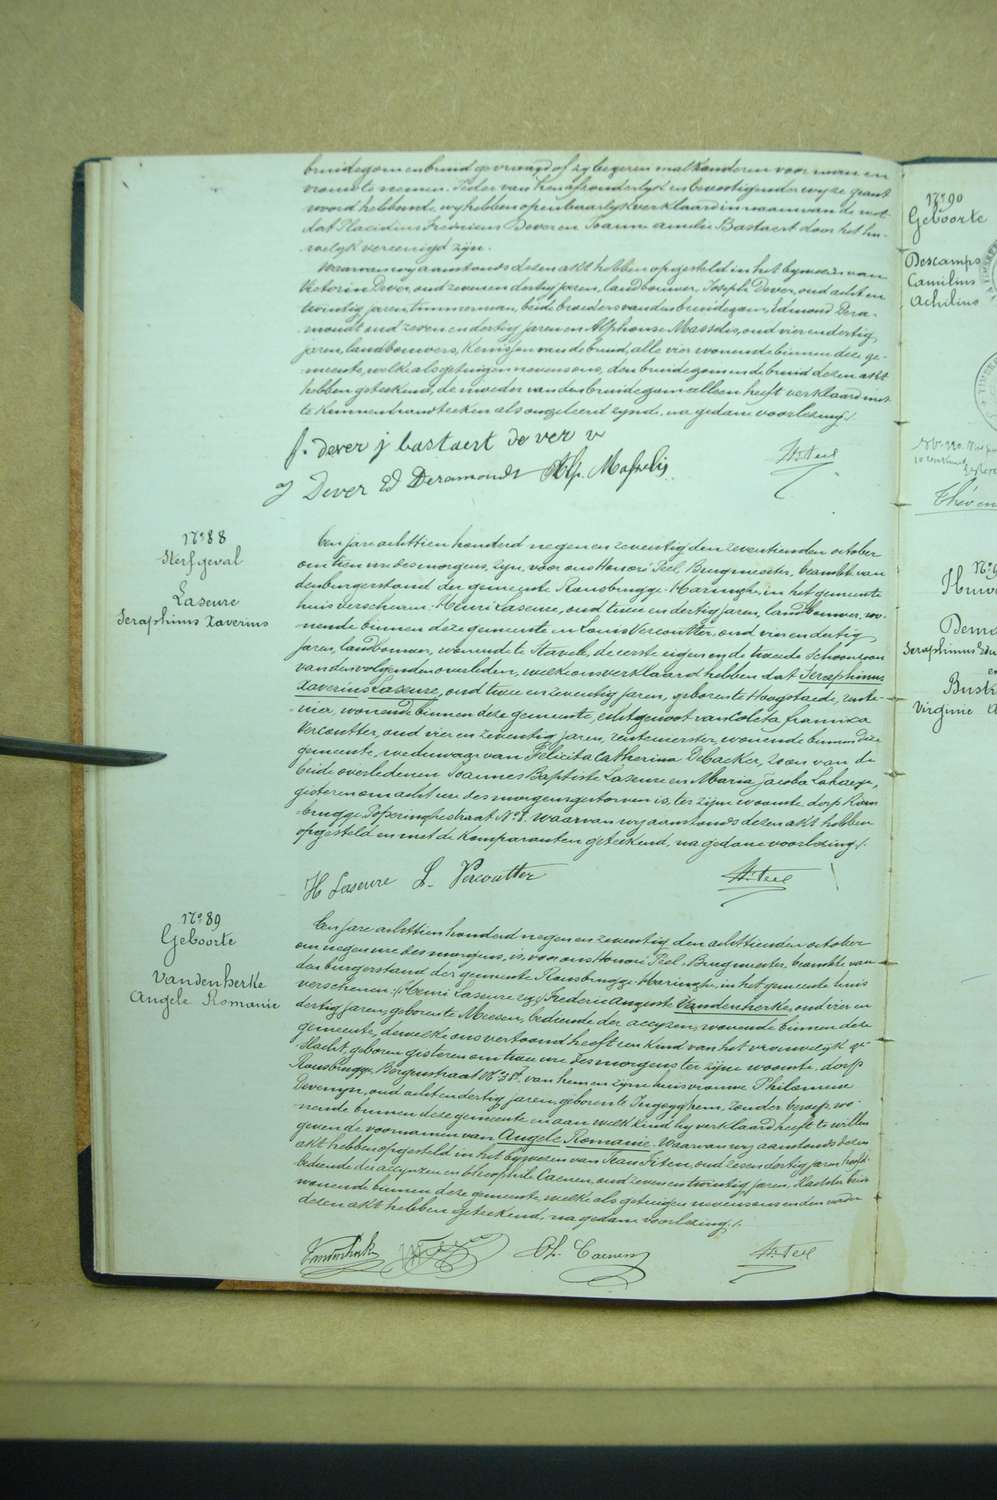 bruidegom en bruid gevraagd of zy begeren malkanderen voor man en
vrouw te nemen. Ieder van hen afzonderlyk en bevestigender wyze geant
woord hebbende, wy hebben openbaarlyk verklaard in naam van de wet
dat Placidius Fredericus Dever en Joanna Amelie Bastaert door het hu-
welyk vereenigd zyn.
Waarvan wy aanstonds dezen akt hebben opgesteld in het bywezen van
Victorin Dever, oud zeven en dertig jaren, landbouwer, Joseph Dever, oud acht en
twintig jaren, timmerman, beide broeders van den bruidegom, Edmond Dera-
moudt oud zeven en dertig jaren en Alphonse Masselis, oud vier en dertig
jaren, landbouwers, kennissen van de bruid, alle vier wonende binnen deze ge-
meente, welke als getuigen nevens ons, den bruidegom en de bruid dezen akt
hebben geteekend, de moeder van den bruidegom alleen heeft verklaard niet
te kunnen handteeken als ongeleerd zynde, na gedane voorlezing./.
f. dever j bastaert de ver v
j Dever Ed Deramoudt Alp. Masselis H. Peel
N° 88
Sterfgeval
Laseure
Seraphinus Xaverius
Een jare achttien honderd negen en zeventig den zeventienden october
om tien ure des morgens, zyn, voor ons Honoré Peel Burgmeester, beambte van
den burgerstand der gemeente Rousbrugge-Haringhe, in het gemeente
huis verschenen: Henri Laseure, oud twee en dertig jaren, landbouwer, wo-
nende binnen deze gemeente en Louis Vercoutter, oud vier en dertig
jaren, landbouwer, wonende te Stavele, de eerste eigen en de tweede schoonzoon
van den volgenden overleden, welke ons verklaard hebben dat Seraphinus
Xaverius Laseure, oud twee en zeventig jaren, geboren te Hoogstaede, rente-
nier, wonende binnen deze gemeente, echtgenoot van Coleta francisca
Vercoutter, oud vier en zeventig jaren, rentenierster, wonende binnen deze
gemeente, weduwaar van Felicita Catherina Debacker, zoon van de
beide overledenen Joannes Baptiste Laseure en Maria Jacoba
gisteren om acht ure des morgens gestorven is, ter zyne woonste dorp Rous
brugge Poperinghestraat N° 8. Waarvan wy aanstonds dezen akt hebben
opgesteld en met de komparanten geteekend, na gedane voorlezing./.
H Laseure L. Vercoutter H. Peel
N° 89
Geboorte
Vandenkerke
Angele Romanie
Een jare achttien honderd negen en zeventig den achttienden october
om negen ure des morgens, is, voor ons Honoré Peel Burgmeester, beambte van
den burgerstand der gemeente Rousbrugge Haringhe, in het gemeente huis
verschenen: Frederic Auguste Vandenkerke, oud vier en
dertig jaren, geboren te Meesen, bediende der accyzen, wonende binnen deze
gemeente, dewelke ons vertoond heeft een kind van het vrouwelyk ge-
slacht, geboren gisteren om twee ure des morgens ter zyne woonste, dorp
Rousbrugge, Bergenstraat N° 38, van hem en zyne huisvrouwe Philomene
Devemyn, oud acht en dertig jaren, geboren te Ingoyghem, zonder beroep, wo-
nende binnen deze gemeente en aan welk kind hy verklaard heeft te willen
geven de voornamen van Angele Romanie. Waarvan wy aanstonds dezen
akt hebben opgesteld in het bywezen van oud zes en dertig jaren hoofd-
bediende der accynzen en Theophile Caenen, oud zeven en twintig jaren,
wonende binnen deze gemeente, welke als getuigen nevens ons en den vader
dezen akt hebben geteekend, na gedane voorlezing./.
Vandenkerke Th. Caenen H. Peel
N° 90
Geboorte
Descamps
Camilius
Achilius